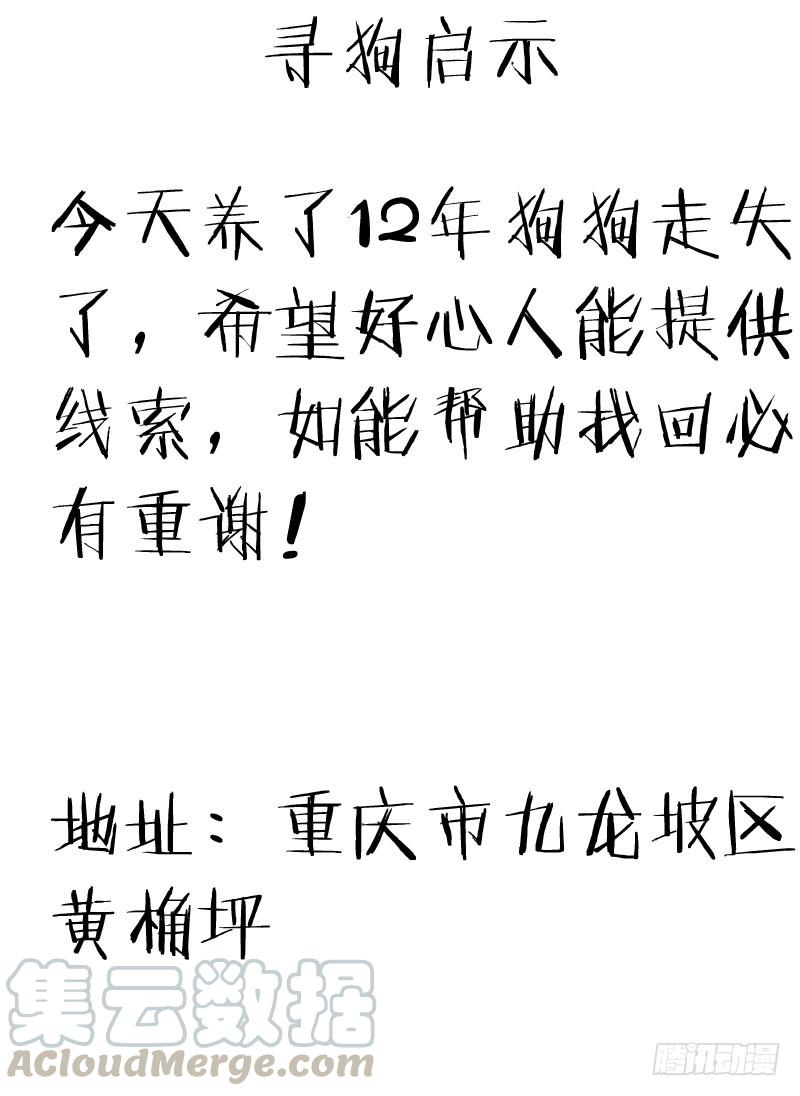 寻狗启示
今天养了12年狗狗走失
了，希望好心人能提供
线索，如能帮助找回必
有重谢！
地址：重庆市九龙坡区
黄桷坪
集云数据
ACloudMerge.com
腾讯动漫